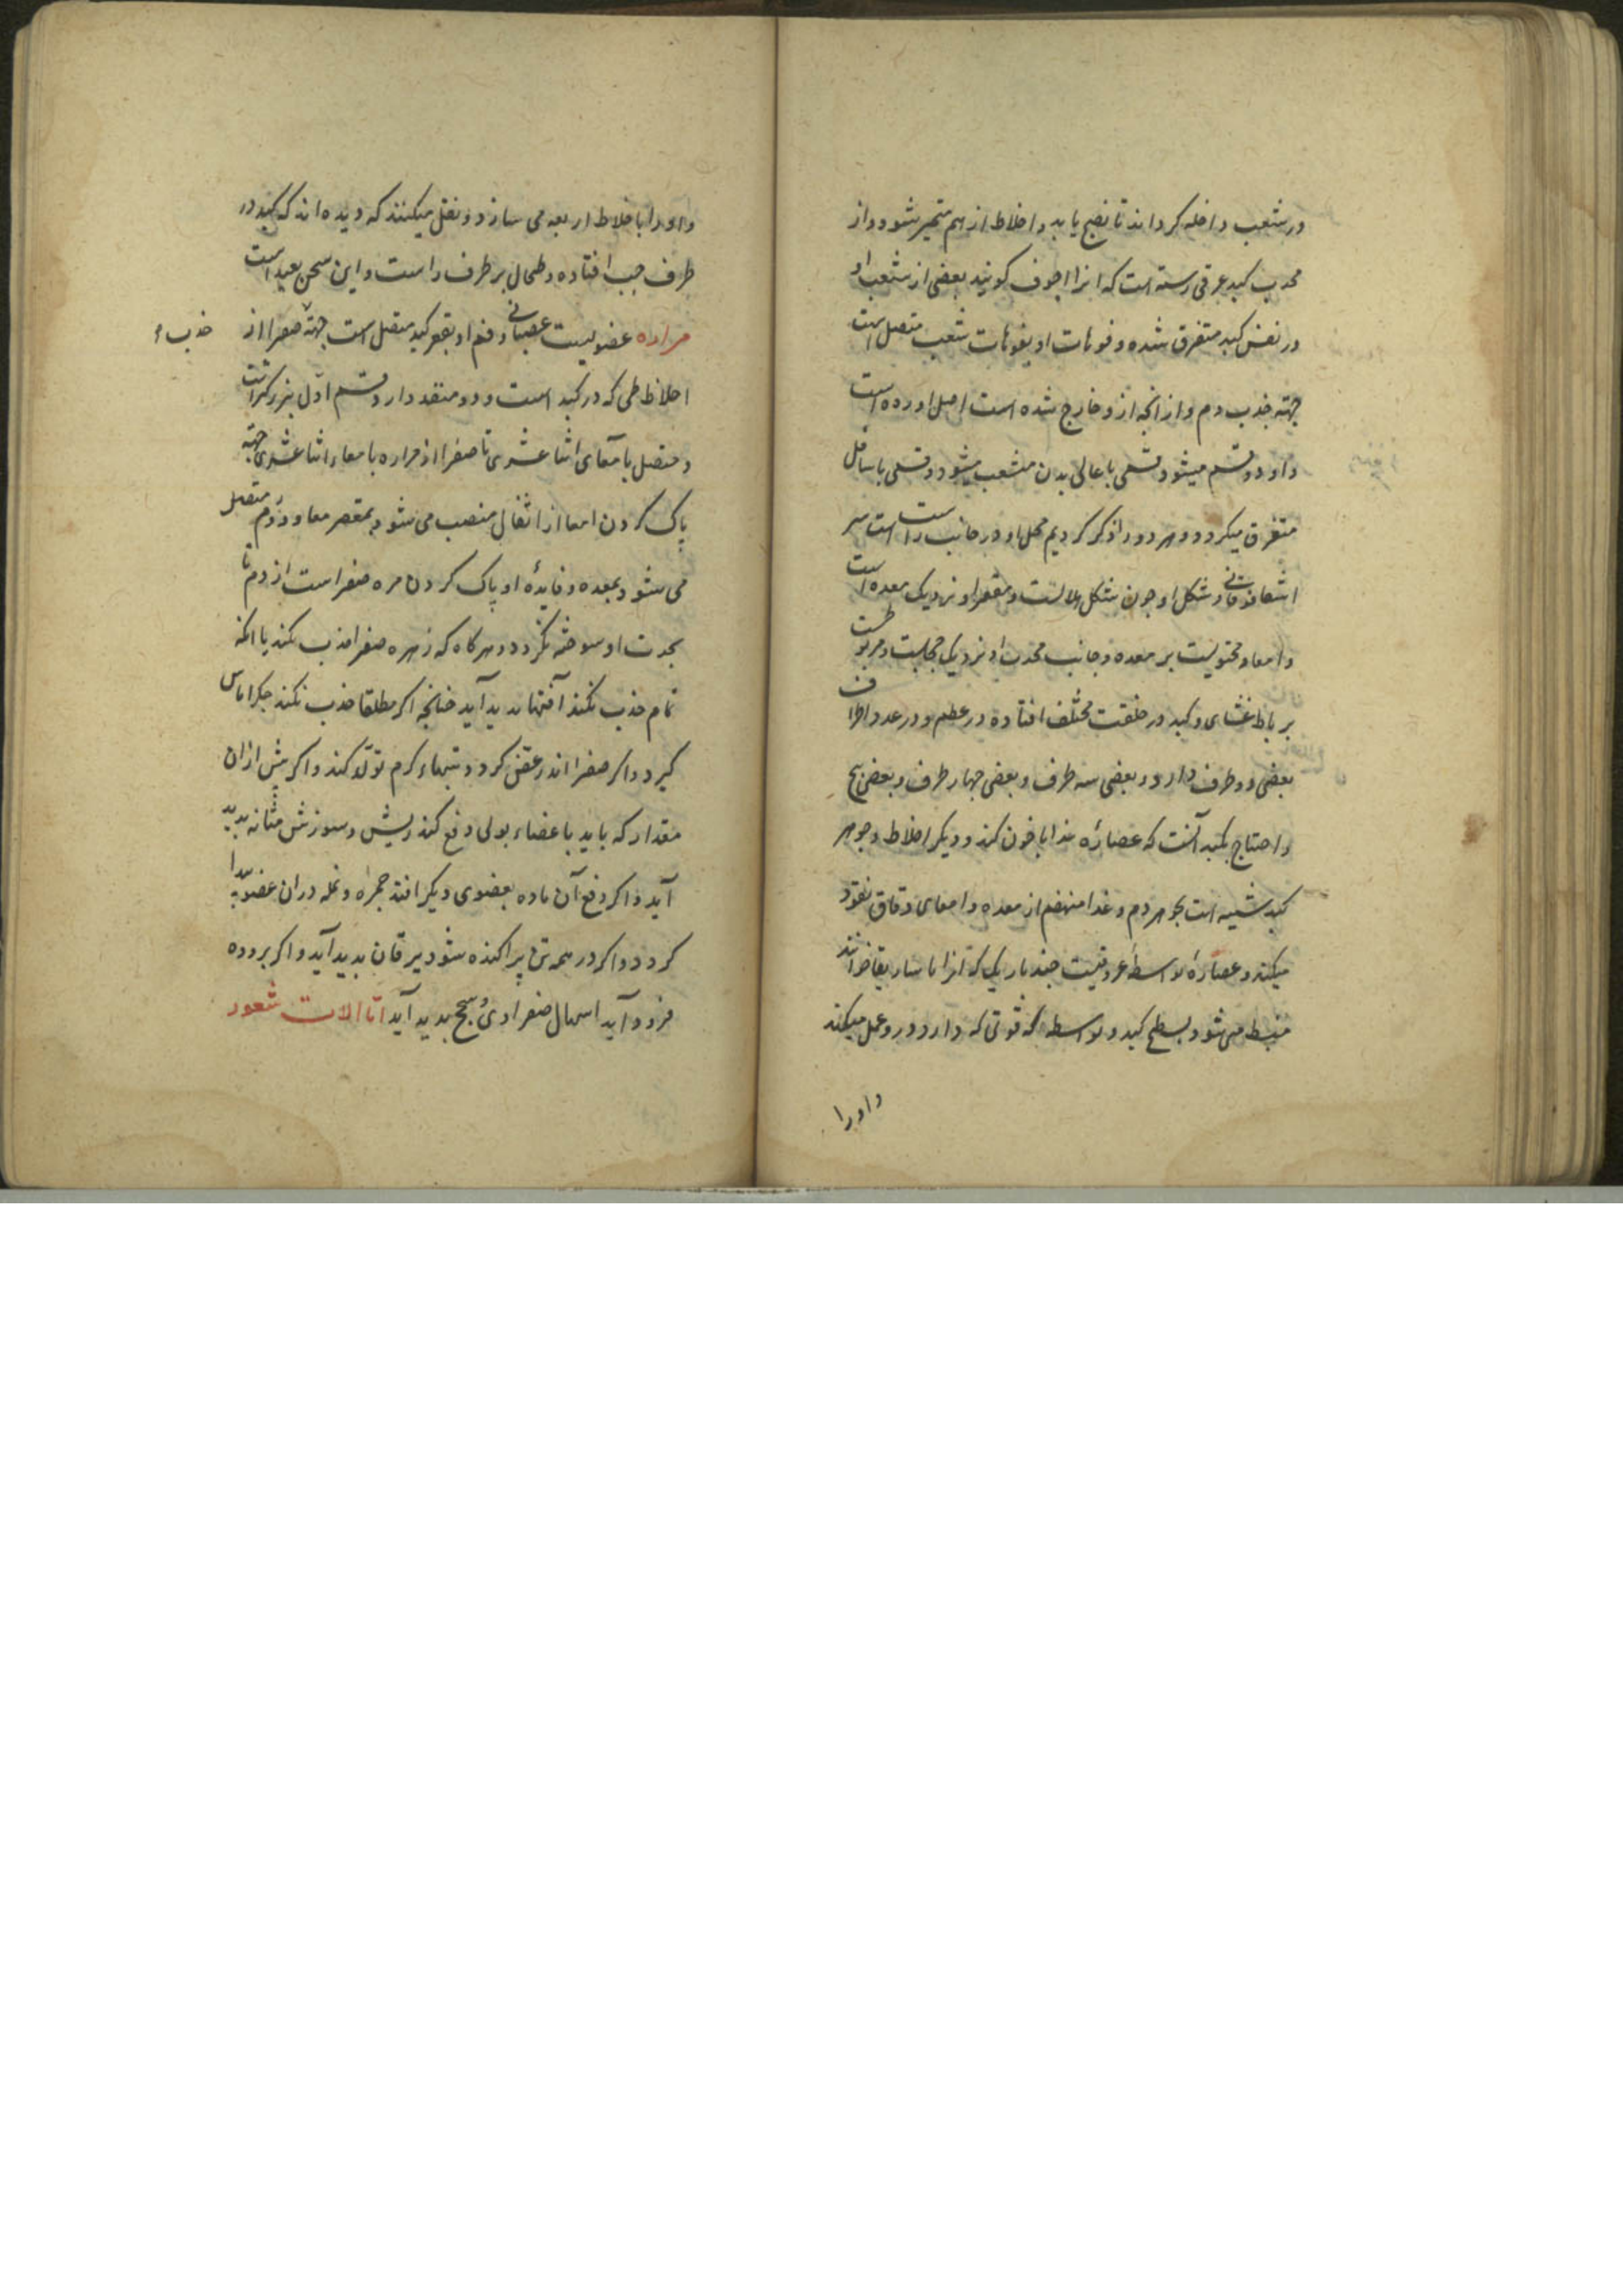 در شعب داخله کرداند تا نضج یابد و اخلاط از هم متمیز شود و از
محدب کبد عرقی رسته است که انرا اجوف کویند بعضی از شعب او
در نفس کبد متفرق شده و فوهات او بفوهات شعب متصل است
جهته جذب دم و از انچه ازو خارج شده است اصل اورده است
و او دو قسم میشود قسمی باعالی بدن منشعب میشود و قسمی باسافل
متفرق میکردد و هر دو را ذکر کردیم محل او در جانب راست است سر
شکل او چون شکل هلالست و مقعر او نزدیک معده است
و امعا و محتویست بر معده و جانب محدب او نزدیک حجابست و مربوطست
برباط غشای و کبد در خلقت مختلف افتاده در عظم و در عدد اطراف
بعضی دو طرف دارد و بعضی سه طرف و بعضی چهار طرف و بعضی پنج
و احتیاج بکبد آنست که عصاره غذا با خون کند و دیکر اخلاط و جوهر
کبد شبیه است بجوهر دم و غذا منهضم از معده و امعای دقاق نفوذ
میکند و عصاره بواسطه عروقیست چند باریک که انرا ماساریقا خوانند
منبسط می شود بسطح کبد و بواسطه که قوتی که دارد درو عمل میکند
و اورا
و اورا باخلاط اربعه می سازد و نقل میکنند که دیده اند که کبد در
طرف چپ افتاده و طحال بر طرف راست و این سخن بعید است
مراره عضویست عصبانی و فم او بقعر کبد متصل است جهة صفرا از
جذب
اخلاطی که در کبد است و دو منفذ دارد قسم اول بزرکتر است
و متصل بامعای اثنا عشری تا صفرا از مراره بامعاء اثنا عشری جهته
پاک کردن امعا از اثفال منصب می شود بمقعر معا و دوم متصل
می شود بمعده و فایدهٔ او پاک کردن مره صفراست از دم تا
بحدت او سوخته نکردد و هرکاه که زهره صفرا جذب نکند یا انکه
تمام جذب نکند آفتها پدید آید چنانچه اکر مطلقا جذب نکند جکر اماس
کیرد و اکر صفرا اندر عفن کردد و تبهاء کرم تولد کند و اکر بیش ازان
مقدار که باید باعضاء بولی دفع کند ریش و سوزش مثانه پدید
آید و اکر دفع آن ماده بعضوی دیکر افتد حمره و نمله دران عضو پیدا
کردد و اکر در همه تن پراکنده شود یرقان پدید آید و اکر بروده
فرود آید اسهال صفراوی و سحج پدید آید اما الات شعور